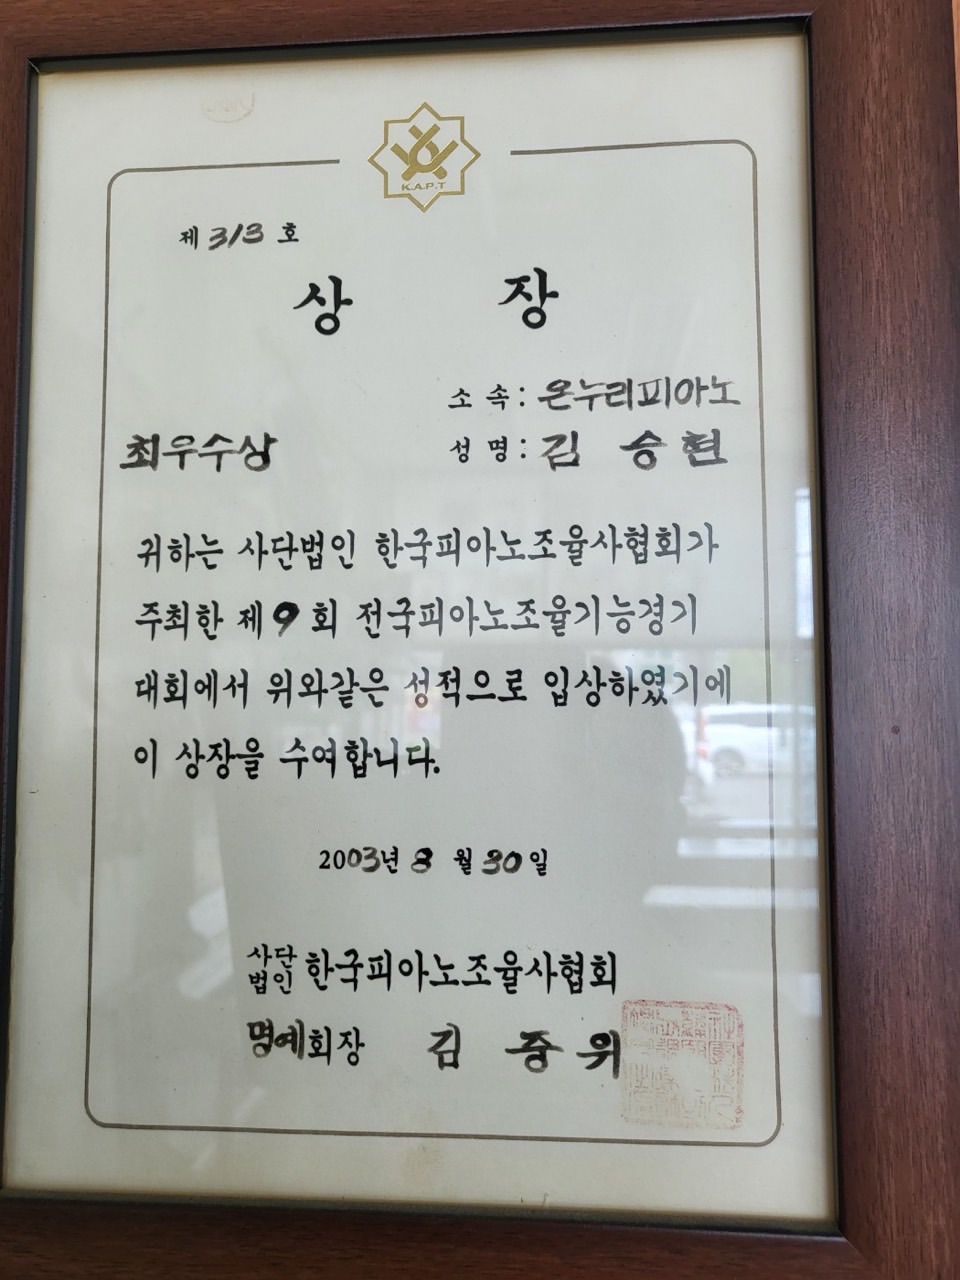 K.A.P.T
제 313 호
상 장
소 속 : 온누리피아노
최우수상
성 명 : 김 승 현
귀하는 사단법인 한국피아노조율사협회가
주최한 제 9 회 전국피아노조율기능경기
대회에서 위와같은 성적으로 입상하였기에
이 상장을 수여합니다.
2003년 8 월 30 일
사단
법인 한국피아노조율사협회
명예회장 김 중 위